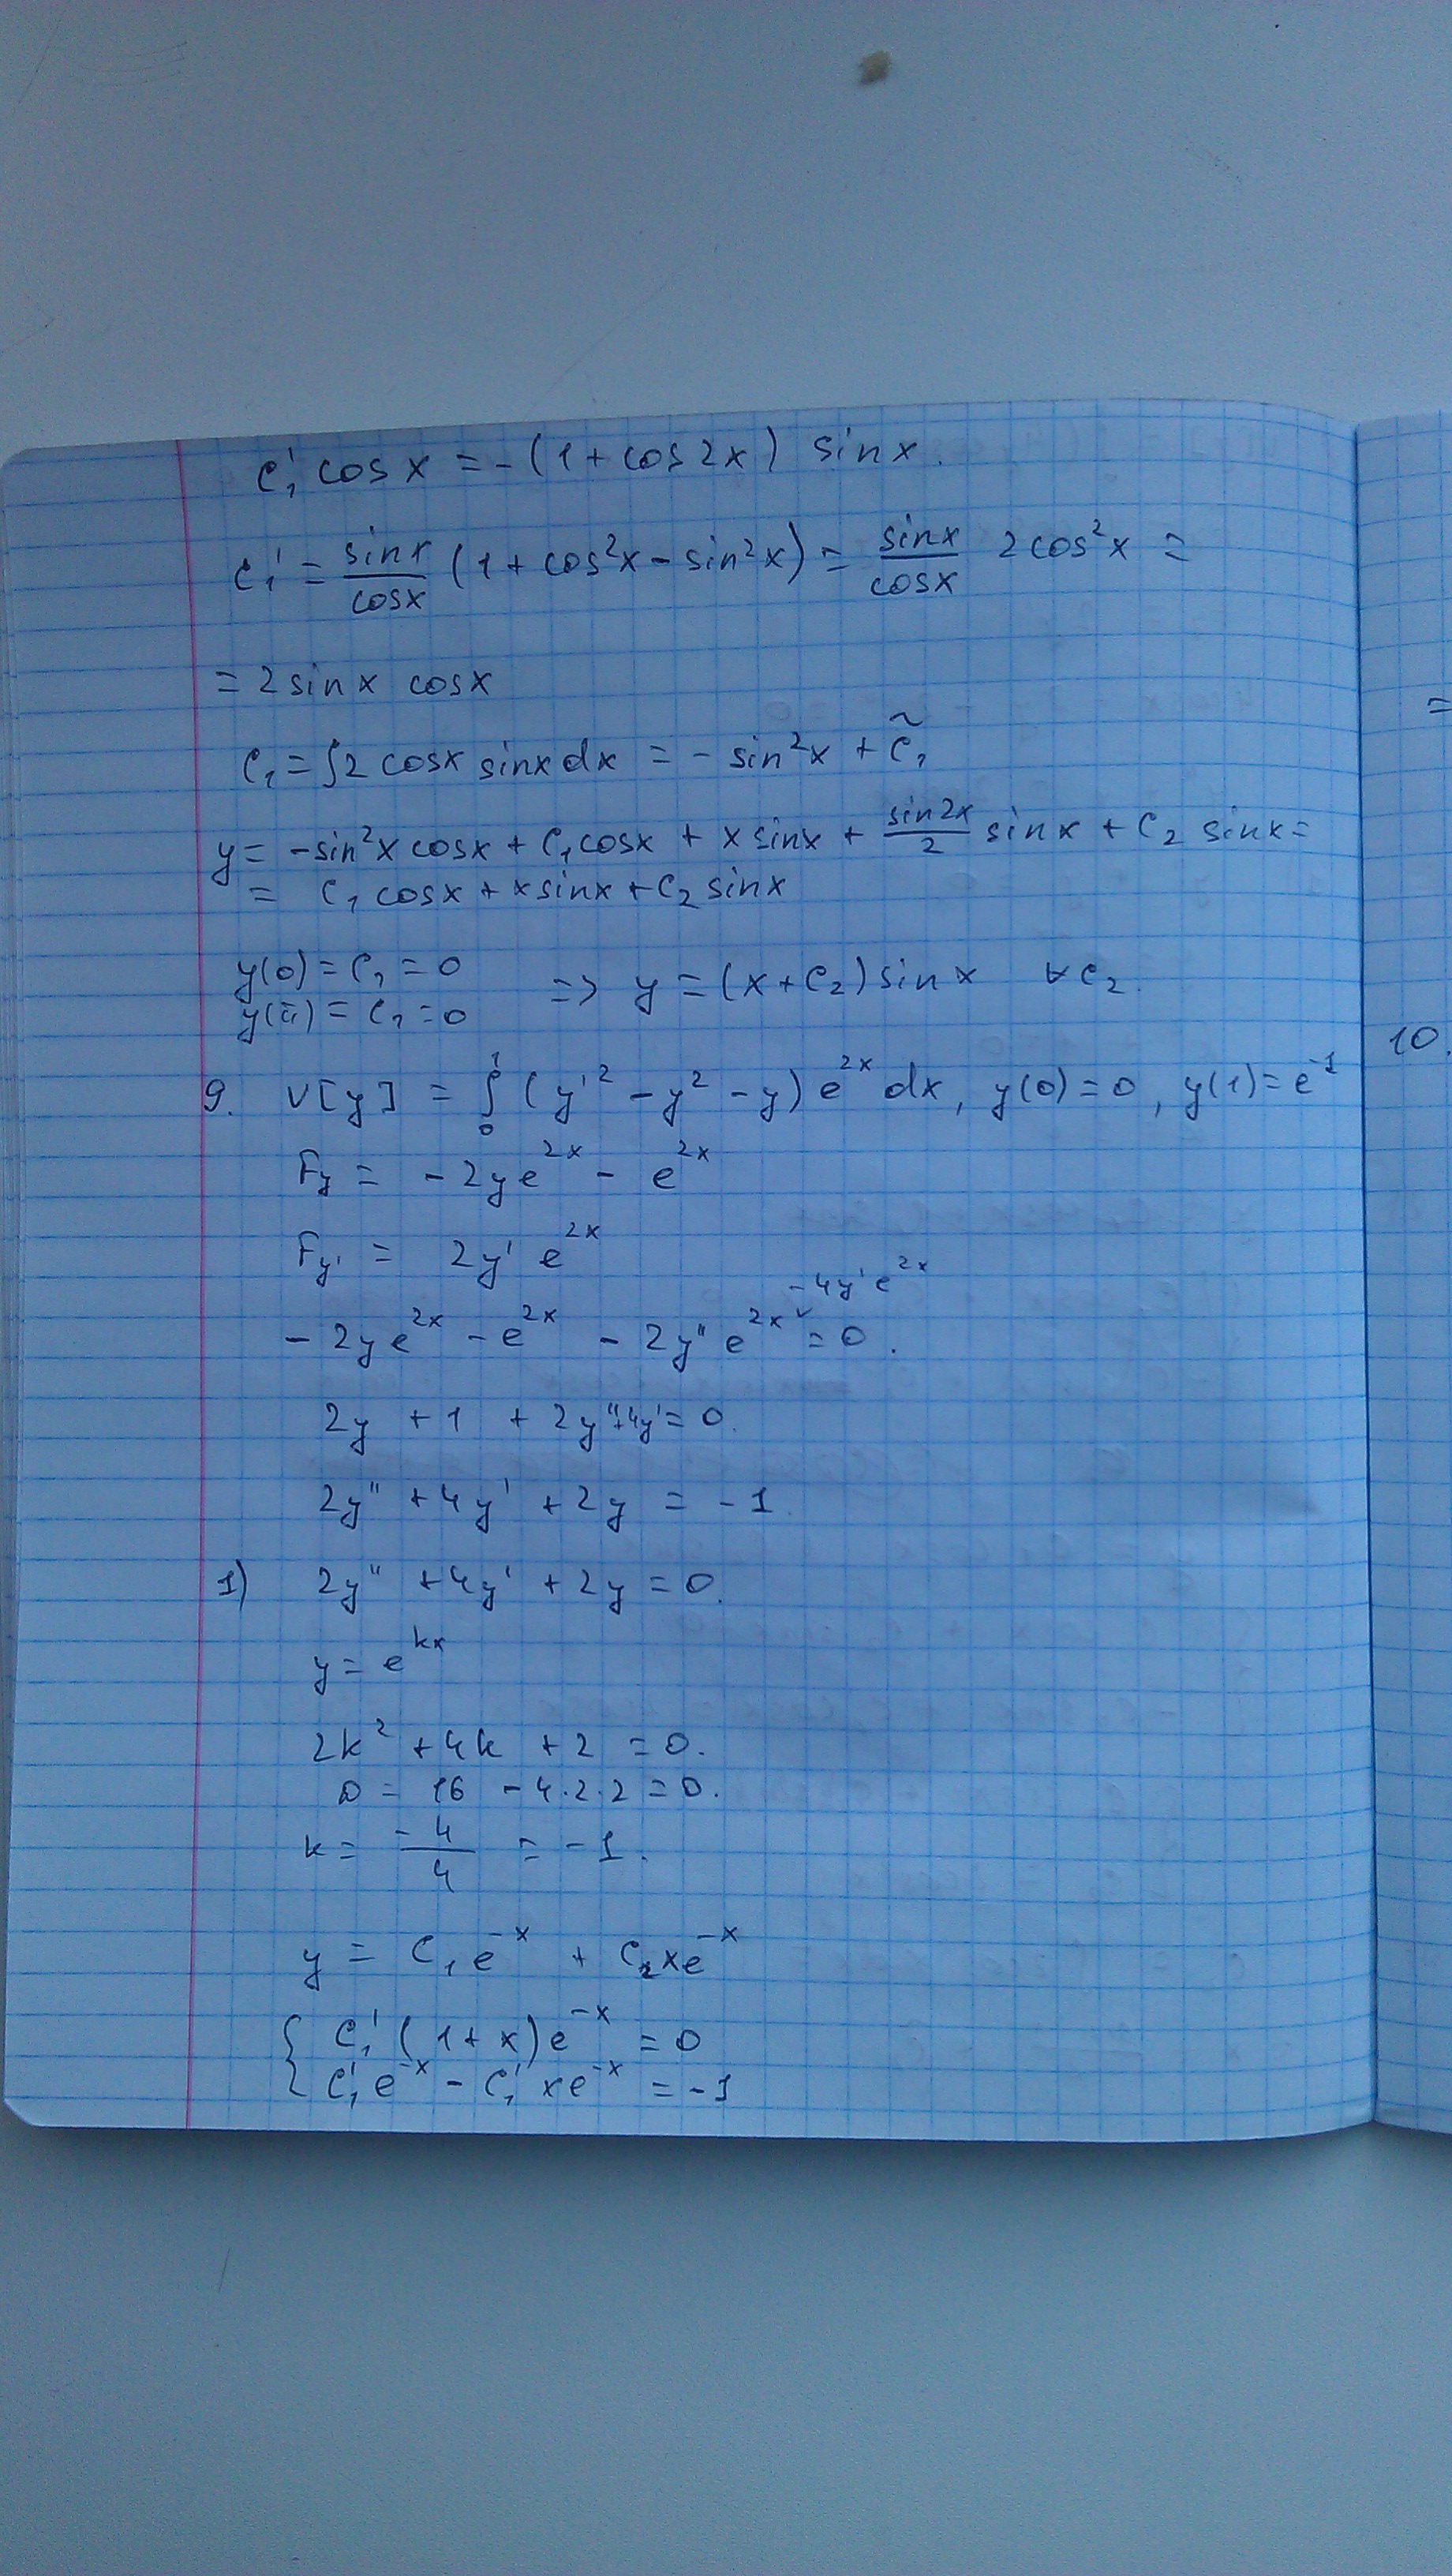 C₁' cos x = -(1 + cos 2x) sin x.
C₁' = sin x / cos x (1 + cos²x - sin²x) = sin x / cos x 2 cos²x =
= 2 sin x cos x
C₁ = ∫ 2 cos x sin x dx = - sin²x + C̃₁
y = - sin²x cos x + C₁ cos x + x sin x + sin 2x / 2 sin x + C₂ sin x =
= C₁ cos x + x sin x + C₂ sin x
y(0) = C₁ = 0
y(π) = C₁ = 0 => y = (x + C₂) sin x ∀ C₂.
9. V[y] = ∫₀¹ (y'² - y² - y) e^{2x} dx, y(0) = 0, y(1) = e^{-1}
F_y = - 2y e^{2x} - e^{2x}
F_{y'} = 2y' e^{2x}
- 2y e^{2x} - e^{2x} - 2y'' e^{2x} - 4y' e^{2x} = 0.
2y + 1 + 2y'' + 4y' = 0.
2y'' + 4y' + 2y = -1
1) 2y'' + 4y' + 2y = 0.
y = e^{kx}
2k² + 4k + 2 = 0.
D = 16 - 4·2·2 = 0.
k = -4 / 4 = -1.
y = C₁ e^{-x} + C₂ x e^{-x}
{ C₁' (1 + x) e^{-x} = 0
C₁' e^{-x} - C₁' x e^{-x} = -1
=
10.